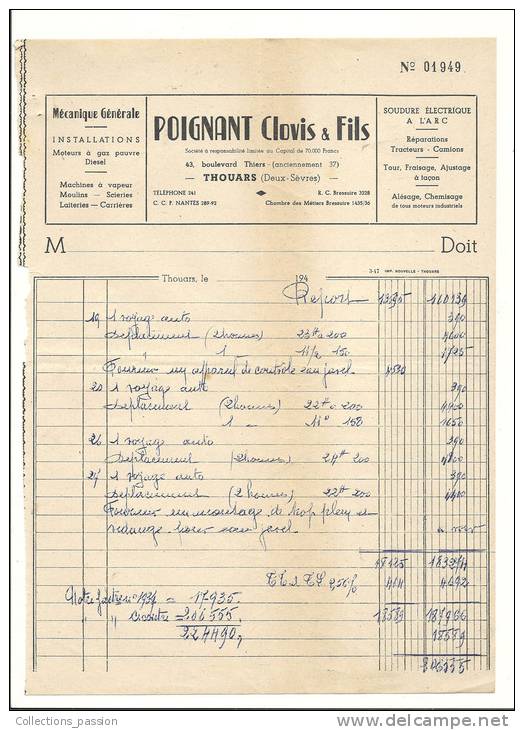 Nº 01949
Mécanique Générale
INSTALLATIONS
Moteurs à gaz pauvre
Diesel
Machines à vapeur
Moulins - Scieries
Laiteries - Carrières
POIGNANT Clovis & Fils
Société à responsabilité limitée au Capital de 70.000 Francs
43, boulevard Thiers - (anciennement 37)
THOUARS (Deux-Sèvres)
TÉLÉPHONE 241
C. C. P. NANTES 289-92
R. C. Bressuire 3028
Chambre des Métiers Bressuire 1435/36
SOUDURE ÉLECTRIQUE
A L'ARC
Réparations
Tracteurs - Camions
Tour, Fraisage, Ajustage
à façon
Alésage, Chemisage
de tous moteurs industriels
M Doit
3-47 IMP. NOUVELLE - THOUARS
Thouars, le 194
Report 13595 160139
19 1 voyage auto 390
Déplacement (2 hommes) 23h à 200 4600
" 1 11h½ 150 1725
Fourni un appareil de contrôle eau gasoil 4530
20 1 voyage auto 390
Déplacement (2 hommes) 22h à 200 4400
1 " 11h 150 1650
26 1 voyage auto 390
Déplacement (2 hommes) 24h 200 4800
27 1 voyage auto 390
Déplacement (2 hommes) 22h 200 4400
Fourni un montage de trop plein et
vidange pour eau
18125 183274
2,56% 464 4692
Notre facture nº 1934 = 17935
" " = 206555 18589 187966
224490 18589
206555
Collections_passion
www.delcampe.net